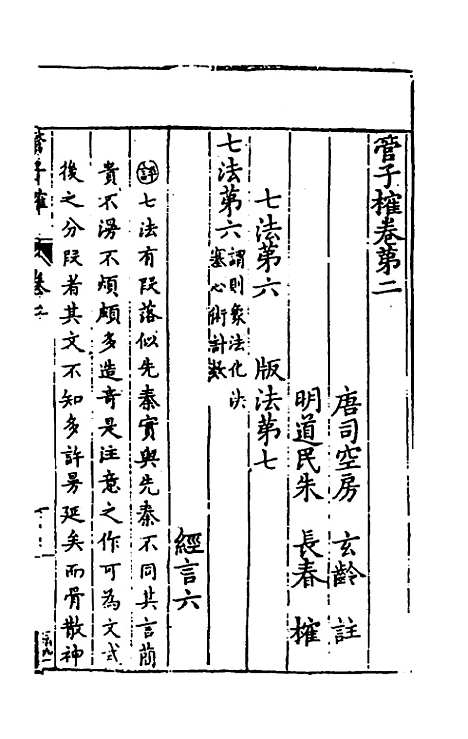 管子榷卷第二
唐司空房 玄齡 註
明道民朱 長春 榷
七法第六 版法第七
七法第六 謂則象法化决塞心術計數
經言六
評七法有段落似先秦實與先秦不同其言簡
貴不澇不煩頗多造奇是注意之作可為文式
後之分段者其文不知多許曼延矣而骨散神
管子榷 卷二